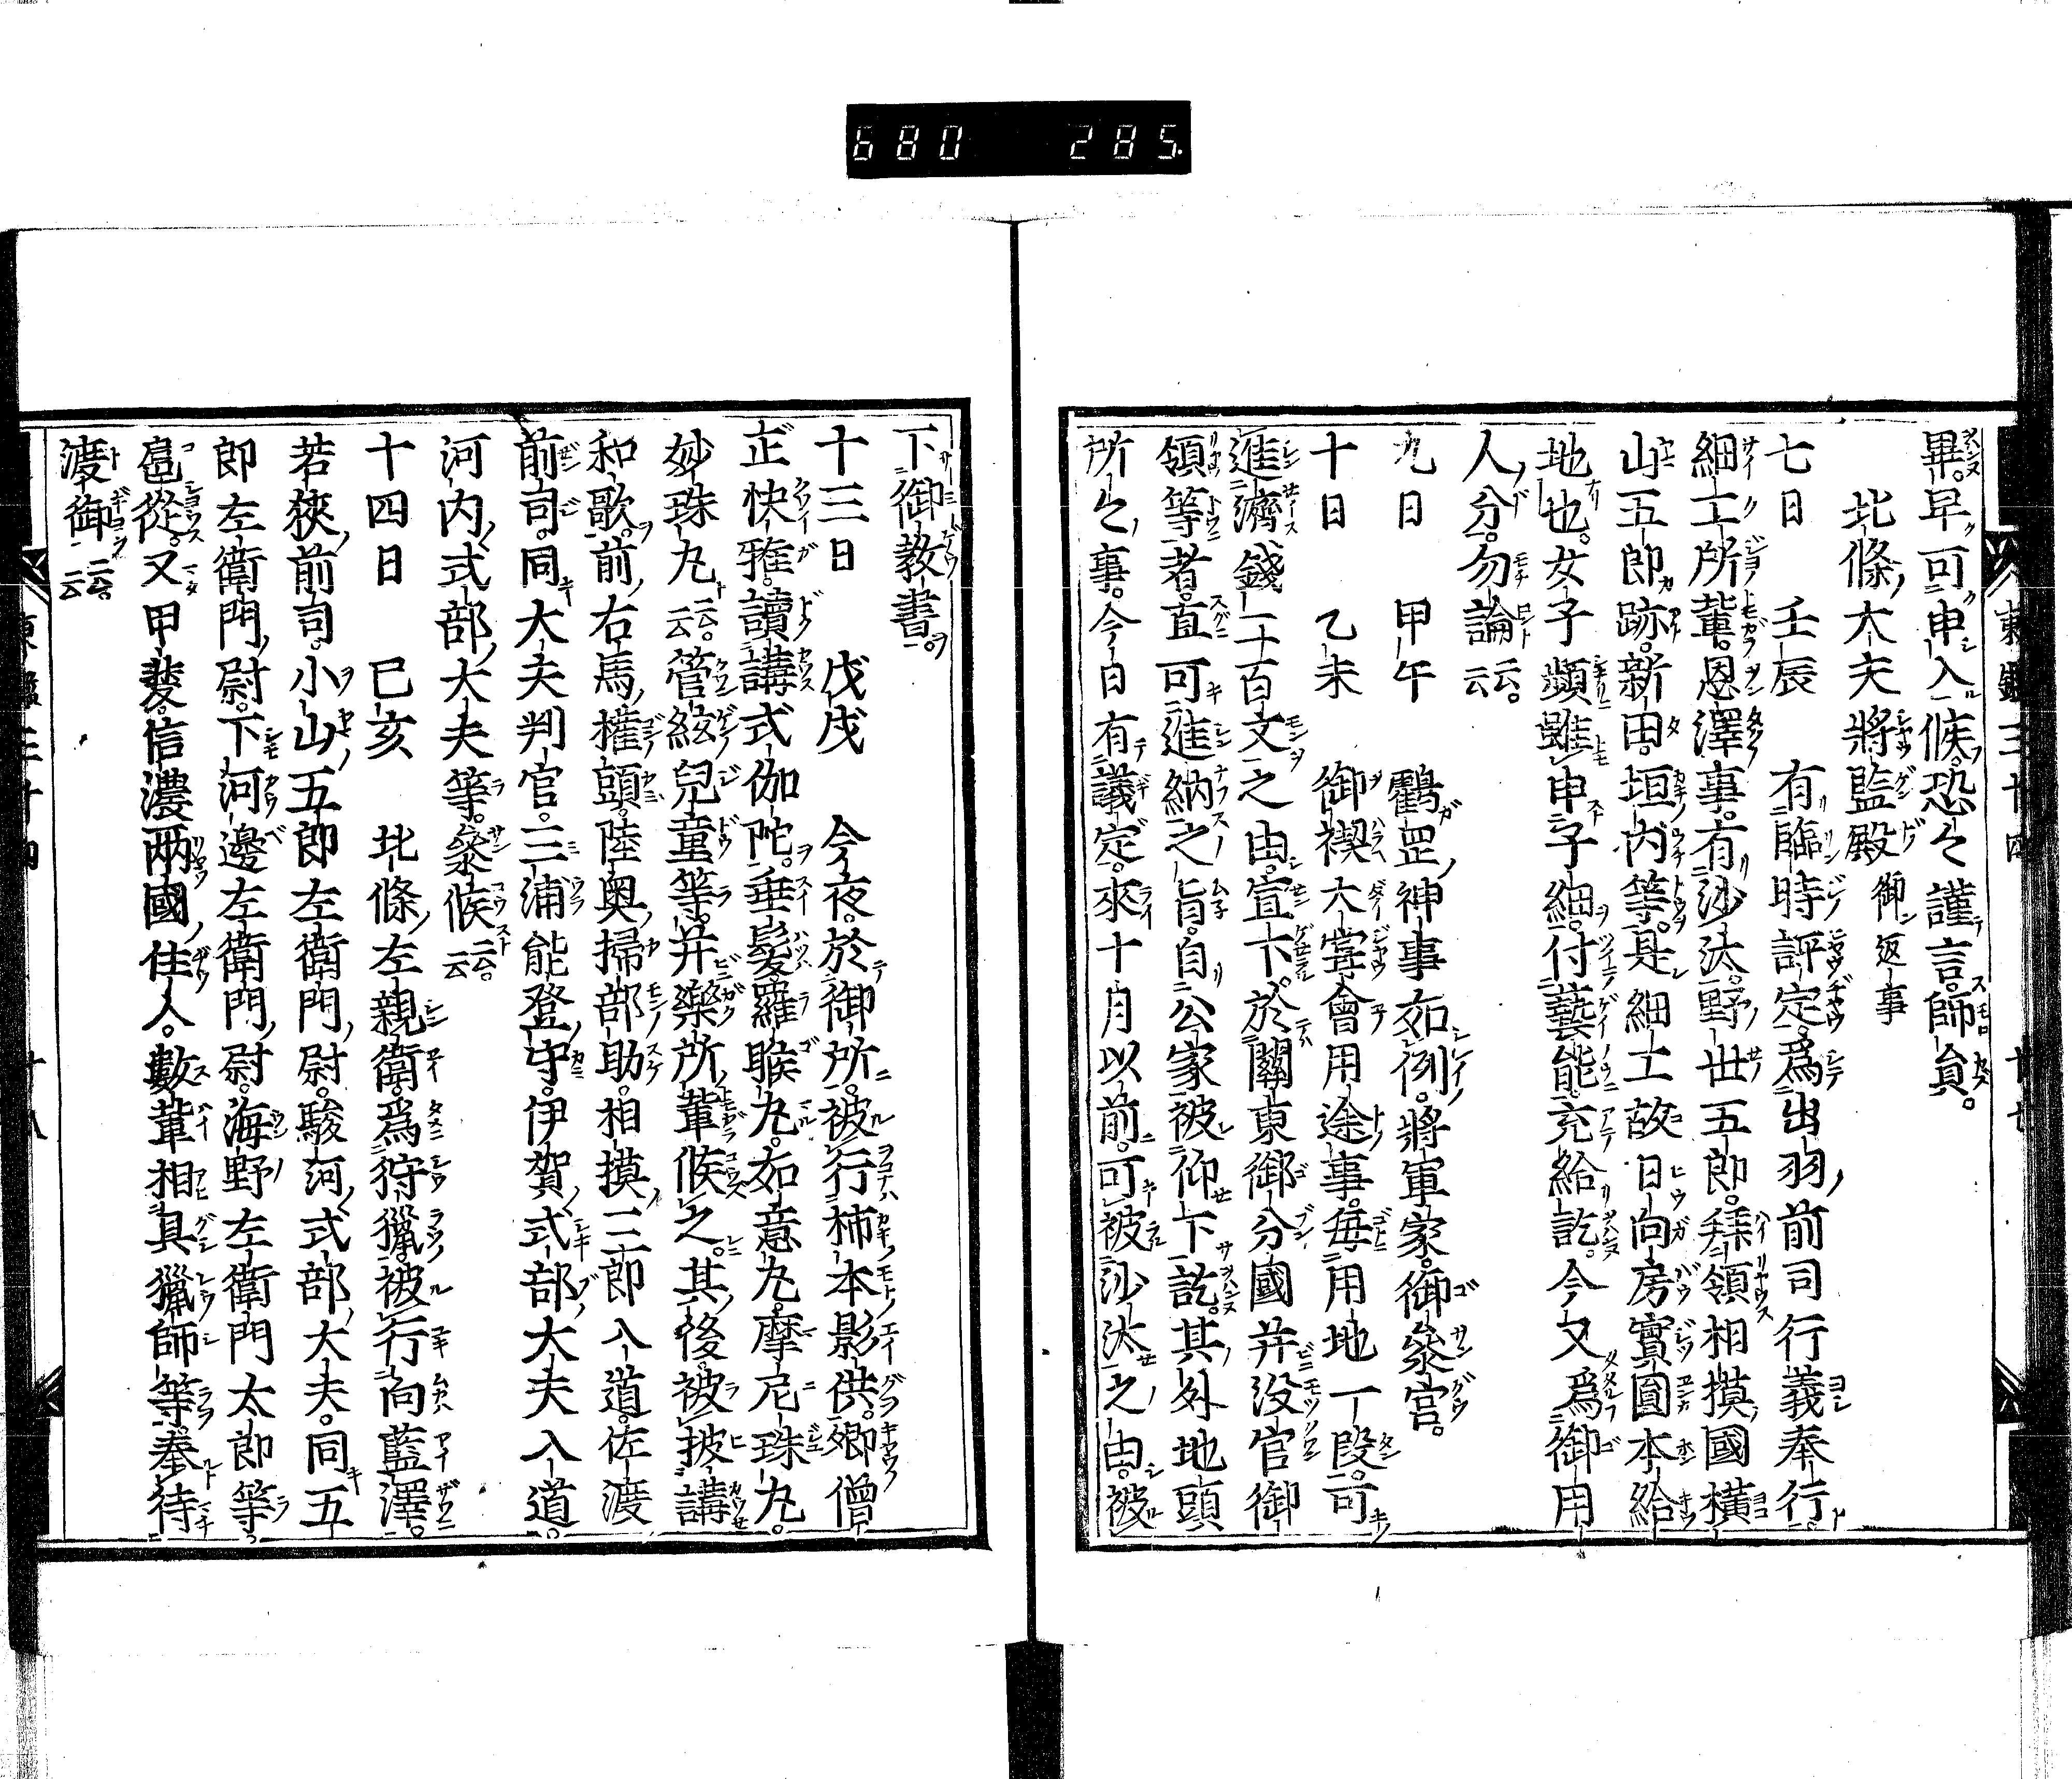 680 285.
畢。早可申入候。恐々謹言。師員。
北條大夫將監殿 御返事
七日 壬辰 有臨時評定。爲出羽前司行義奉行。
細工所輩。恩澤事。有沙汰。野世五郎。拜領相摸國横
山五郎跡。新田。垣内等。是細工故日向房實圓本給
地也。女子頻雖申子細。付藝能充給訖。今又爲御用
人分。勿論云云。
九日 甲午 鶴岡神事如例。將軍家。御參宮。
十日 乙未 御禊大甞會用途事。毎用地一段。可
進濟錢一十百文之由。宣下。於關東御分國并没官御
領等者。直可進納之旨。自公家被仰下訖。其外地頭
所々事。今日有議定。來十月以前。可被沙汰之由。被
下御教書。
十三日 戊戌 今夜。於御所。被行柿本影供。卿僧
正快雅。讀講式伽陀。垂髮羅睺丸。如意丸。摩尼珠丸。
妙珠丸云云。管絃兒童等。并樂所輩候之。其後。被披講
和歌。前右馬權頭。陸奥掃部助。相摸三郎入道。佐渡
前司。同大夫判官。三浦能登守。伊賀式部大夫入道。
河内式部大夫等。參候云云。
十四日 己亥 北條左親衛。爲狩獵。被行向藍澤。
若狹前司。小山五郎左衛門尉。駿河式部大夫。同五
郎左衛門尉。下河邊左衛門尉。海野左衛門太郎等。
扈從。又甲斐。信濃兩國住人。數輩相具獵師等奉待
渡御云云。